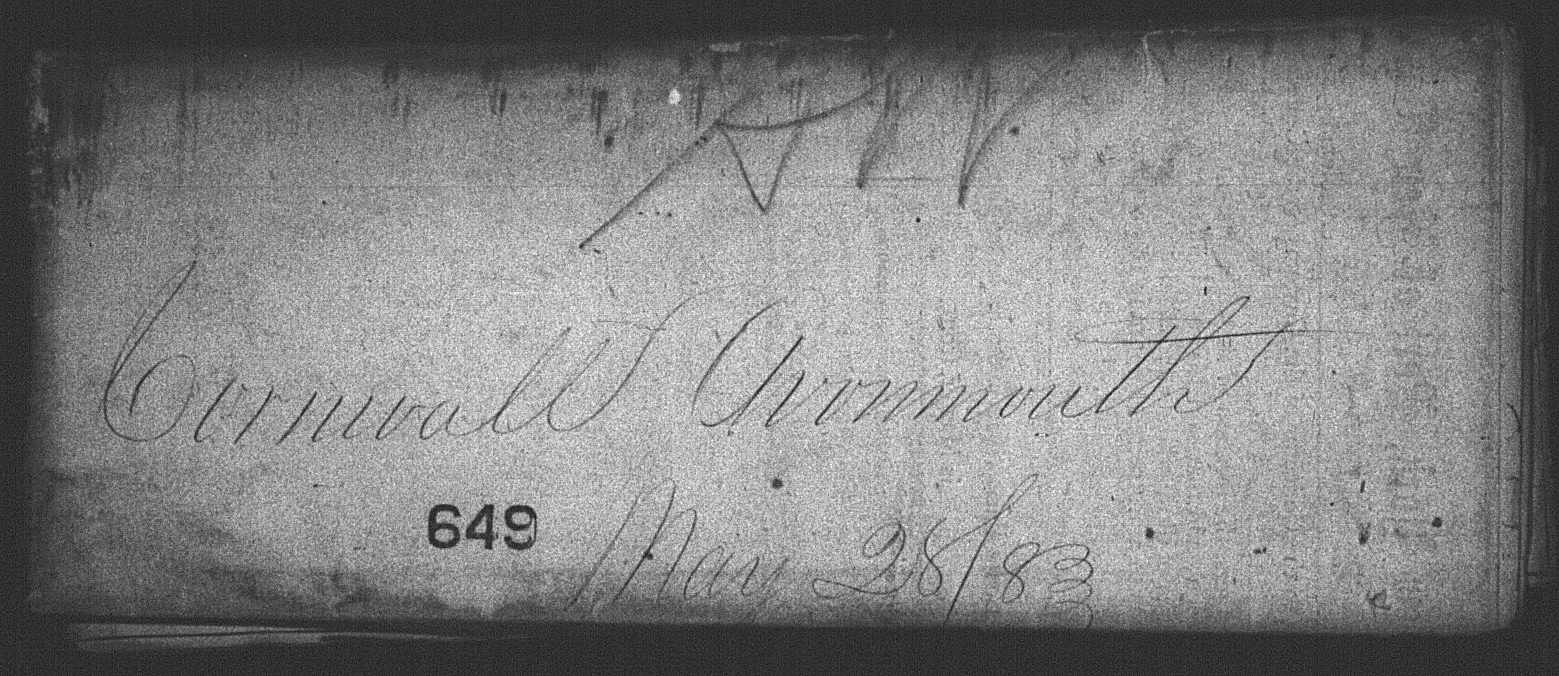 Cornwall Avonmouth
649
May 28/83